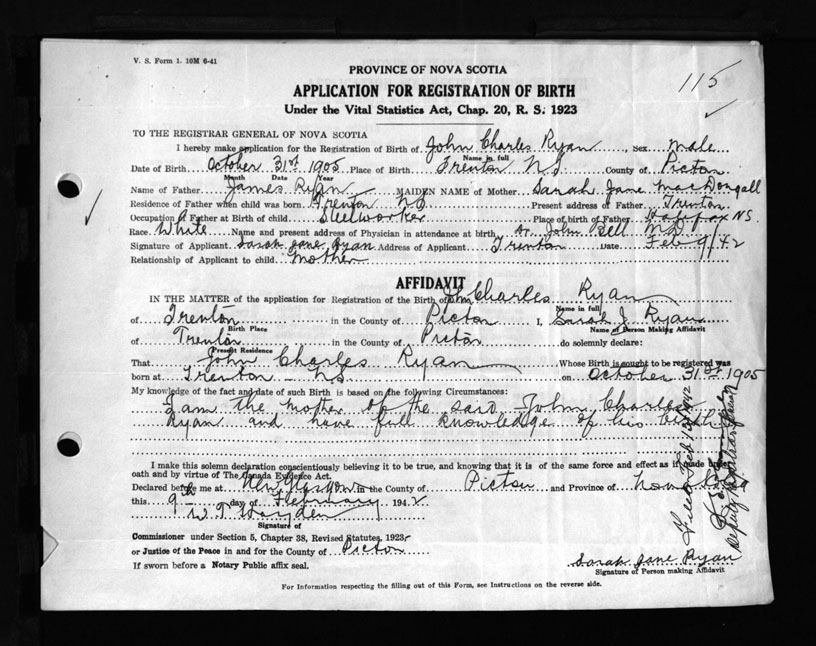 V. S. Form 1. 10M 6-41
115
PROVINCE OF NOVA SCOTIA
APPLICATION FOR REGISTRATION OF BIRTH
Under the Vital Statistics Act, Chap. 20, R. S. 1923
TO THE REGISTRAR GENERAL OF NOVA SCOTIA
I hereby make application for the Registration of Birth of John Charles Ryan, Sex male
Name in full
Date of Birth October 31st 1905 Place of Birth Trenton N.S County of Pictou
Month Date Year
Name of Father James Ryan MAIDEN NAME of Mother Sarah Jane MacDougall
Residence of Father when child was born Trenton NS Present address of Father Trenton
Occupation of Father at Birth of child Steelworker Place of birth of Father Halifax NS.
Race White Name and present address of Physician in attendance at birth Dr John Bell MD
Signature of Applicant Sarah Jane Ryan Address of Applicant Trenton Date Feb 9/42
Relationship of Applicant to child mother
AFFIDAVIT
IN THE MATTER of the application for Registration of the Birth of John Charles Ryan
Name in full
of Trenton in the County of Pictou I, Sarah J. Ryan
Birth Place Name of Person Making Affidavit
of Trenton in the County of Pictou do solemnly declare:
Present Residence
That John Charles Ryan Whose Birth is sought to be registered was
born at Trenton NS on October 31st 1905
My knowledge of the fact and date of such Birth is based on the following Circumstances:
I am the mother of the said John Charles
Ryan and have full knowledge of his birth
I make this solemn declaration conscientiously believing it to be true, and knowing that it is of the same force and effect as if made under
oath and by virtue of The Canada Evidence Act.
Declared before me at New Glasgow in the County of Pictou and Province of Nova Scotia
this 9th day of February 1942
W. T. Hayden
Signature of
Commissioner under Section 5, Chapter 38, Revised Statutes, 1923,
or Justice of the Peace in and for the County of Pictou
If sworn before a Notary Public affix seal.
Sarah Jane Ryan
Signature of Person making Affidavit
For Information respecting the filling out of this Form, see Instructions on the reverse side.